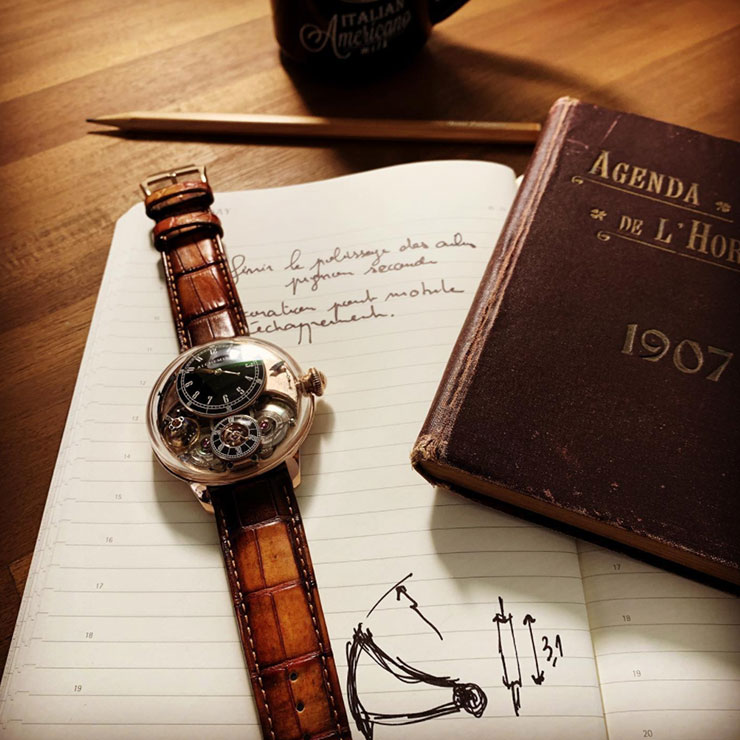 ITALIAN
Americano
AGENDA
DE L'HOR
1907
finir le polissage des ailes
pignon seconde
coration pont mobile
échappement.
15
16
17
18
19
3,1
18
19
20